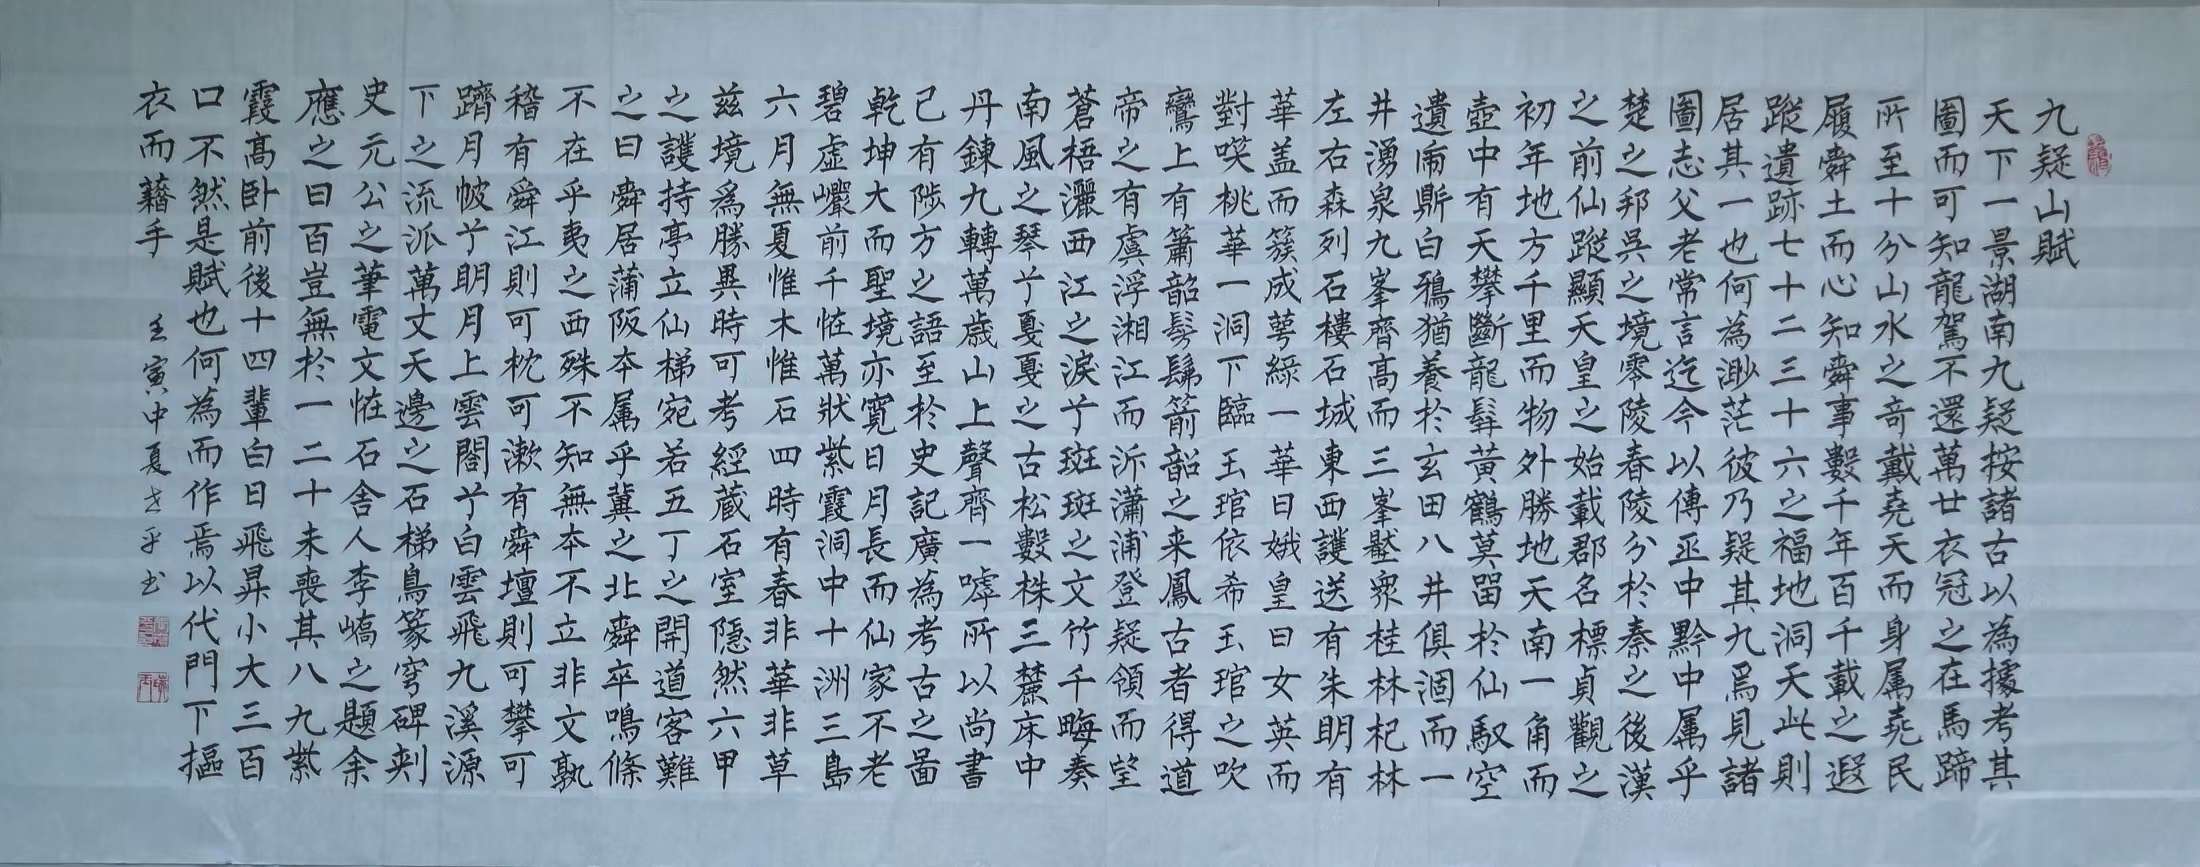 九疑山賦
天下一景湖南九疑按諸古以為據考其
圖而可知龍駕不還萬廿衣冠之在馬蹄
所至十分山水之奇戴堯天而身属堯民
履舜土而心知舜事數千年百千載之遐
蹤遺跡七十二三十六之福地洞天此則
居其一也何為渺茫彼乃疑其九焉見諸
圖志父老常言迄今以傳巫中黔中属乎
楚之邦吳之境零陵舂陵分於秦之後漢
之前仙蹤顯天皇之始載郡名標貞觀之
初年地方千里而物外勝地天南一角而
壺中有天攀斷龍髯黃鶴莫留於仙馭空
遺兩鼎白鴉猶養於玄田八井俱涸而一
井湧泉九峯齊高而三峯壓衆桂林杞林
左右森列石樓石城東西護送有朱明有
華蓋而簇成萼綠一華曰娥皇曰女英而
對嘆桃華一洞下臨玉琯依希玉琯之吹
鸞上有簫韶髣髴簫韶之来鳳古者得道
帝之有虞浮湘江而泝瀟浦登疑領而望
蒼梧灑西江之淚兮斑斑之文竹千畮奏
南風之琴兮戛戛之古松數株三麓床中
丹鍊九轉萬歲山上聲齊一嘑所以尚書
己有陟方之語至於史記廣為考古之啚
乾坤大而聖境亦寬日月長而仙家不老
碧虛巗前千恠萬狀紫霞洞中十洲三島
六月無夏惟木惟石四時有春非華非草
茲境爲勝異時可考經蔵石室隱然六甲
之護持亭立仙梯宛若五丁之開道客難
之曰舜居蒲阪夲属乎冀之北舜卒鳴條
不在乎夷之西殊不知無夲不立非文孰
稽有舜江則可枕可漱有舜壇則可攀可
躋月帔兮明月上雲閣兮白雲飛九溪源
下之流派萬丈天邊之石梯鳥篆穹碑刾
史元公之筆電文恠石舍人李嶠之題余
應之曰百豈無於一二十未喪其八九紫
霞高卧前後十四輩白日飛昇小大三百
口不然是賦也何為而作焉以代門下摳
衣而藉手
壬寅中夏老平书